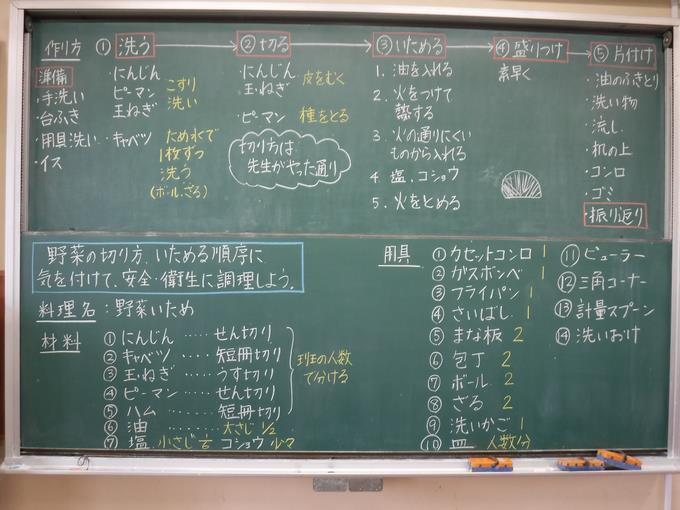 作り方
準備
・手洗い
・台ふき
・用具洗い
・イス
① 洗う
・にんじん
ピーマン
玉ねぎ
こすり
洗い
・キャベツ
ため水で
1枚ずつ
洗う
(ボール、ざる)
② 切る
・にんじん
玉ねぎ
皮をむく
・ピーマン 種をとる
切り方は
先生がやった通り
③ いためる
1. 油を入れる
2. 火をつけて
熱する
3. 火の通りにくい
ものから入れる
4. 塩、コショウ
5. 火をとめる
④ 盛りつけ
素早く
⑤ 片付け
・油のふきとり
・洗い物
・流し
・机の上
・コンロ
・ゴミ
・振り返り
野菜の切り方、いためる順序に
気を付けて、安全・衛生に調理しよう。
料理名:野菜いため
材料
① にんじん ····· せん切り
② キャベツ ····· 短冊切り
③ 玉ねぎ ····· うす切り
④ ピーマン ····· せん切り
⑤ ハム ······ 短冊切り
班の人数
で分ける
⑥ 油 ······· 大さじ 1/2
⑦ 塩 小さじ コショウ 少々
用具
① カセットコンロ 1
② ガスボンベ 1
③ フライパン 1
④ さいばし 1
⑤ まな板 2
⑥ 包丁 2
⑦ ボール 2
⑧ ざる 2
⑨ 洗いかご 1
⑩ 皿 人数分
⑪ ピューラー
⑫ 三角コーナー
⑬ 計量スプーン
⑭ 洗いおけ